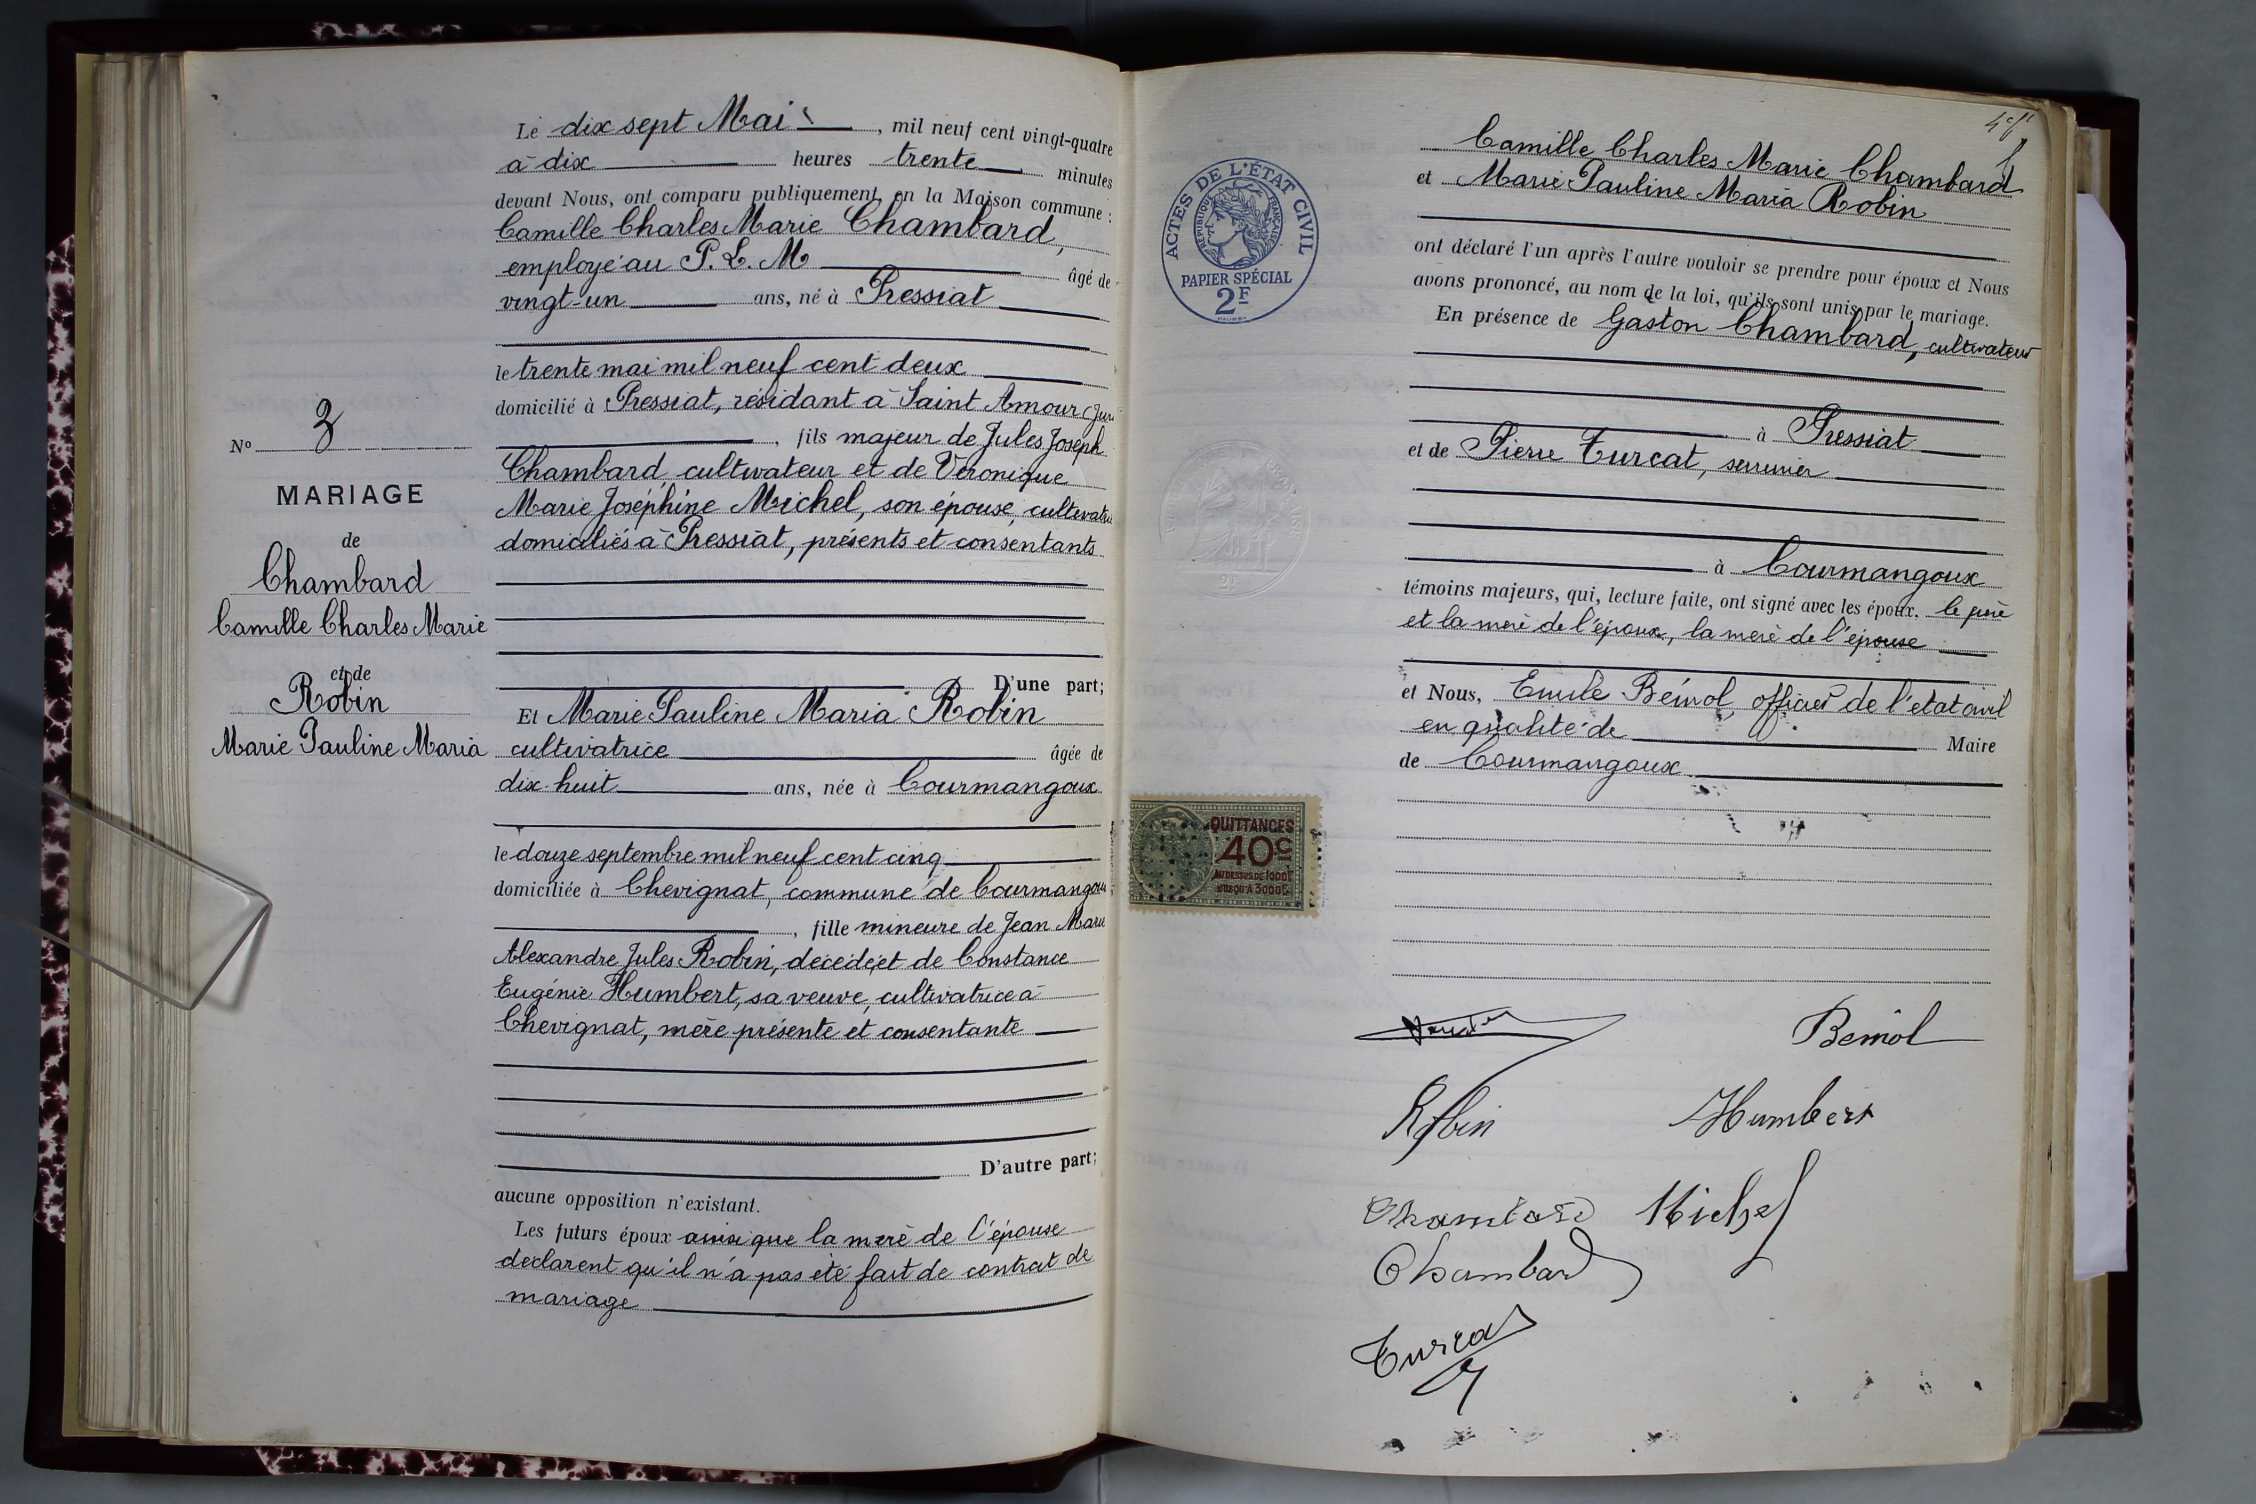 Le dix sept Mai, mil neuf cent vingt-quatre
à dix heures trente minutes
devant Nous, ont comparu publiquement en la Maison commune :
Camille Charles Marie Chambard,
employé au P. L. M âgé de
vingt-un ans, né à Pressiat
le trente mai mil neuf cent deux
domicilié à Pressiat, résidant à Saint Amour (Jura
, fils majeur de Jules Joseph
Chambard, cultivateur et de Véronique
Marie Joséphine Michel, son épouse, cultivatrice
domiciliés à Pressiat, présents et consentants
D'une part;
Et Marie Pauline Maria Robin
cultivatrice âgée de
dix-huit ans, née à Courmangoux
le douze septembre mil neuf cent cinq
domiciliée à Chevignat, commune de Courmangoux
, fille mineure de Jean Marie
Alexandre Jules Robin, décédé, et de Constance
Eugénie Humbert, sa veuve, cultivatrice à
Chevignat, mère présente et consentante
D'autre part;
aucune opposition n'existant.
Les futurs époux ainsi que la mère de l'épouse
déclarent qu'il n'a pas été fait de contrat de
mariage
N° 3
MARIAGE
de
Chambard
Camille Charles Marie
et de
Robin
Marie Pauline Maria
ACTES DE L'ÉTAT CIVIL
RÉPUBLIQUE FRANÇAISE
PAPIER SPÉCIAL
2F
Camille Charles Marie Chambard
et Marie Pauline Maria Robin
ont déclaré l'un après l'autre vouloir se prendre pour époux et Nous
avons prononcé, au nom de la loi, qu'ils sont unis par le mariage.
En présence de Gaston Chambard, cultivateur
à Pressiat
et de Pierre Turcat, serrurier
à Courmangoux
témoins majeurs, qui, lecture faite, ont signé avec les époux. le père
et la mère de l'époux, la mère de l'épouse
et Nous, Emile Bémol, officier de l'état civil
en qualité de Maire
de Courmangoux
QUITTANCES
40c
AU DESSUS DE 1000F
JUSQU'A 3000F
Bémol
Robin Humbert
Chambard Michel
Chambard
Turcat